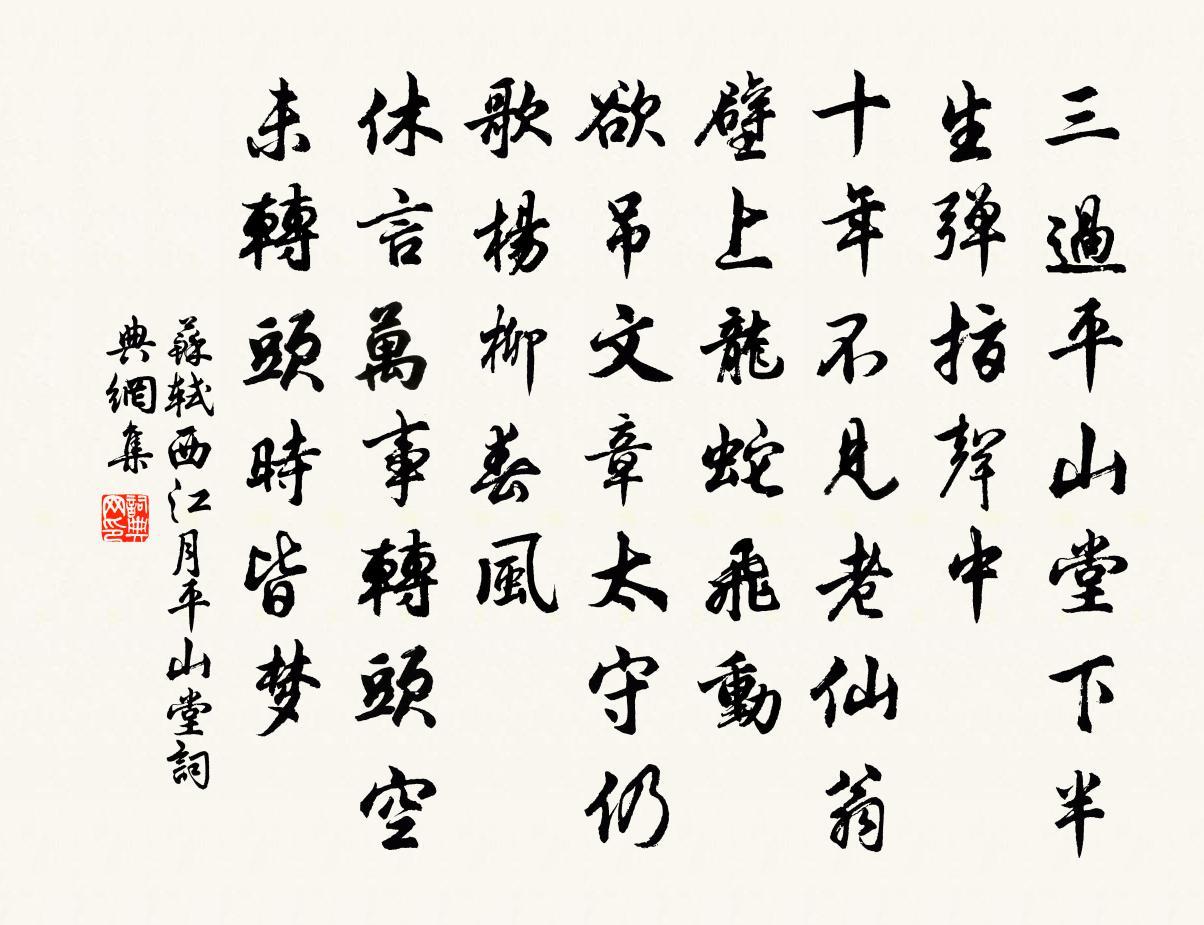 三過平山堂下半
生彈指聲中
十年不見老仙翁
壁上龍蛇飛動
欲吊文章太守仍
歌楊柳春風
休言萬事轉頭空
未轉頭時皆梦
蘇軾西江月平山堂詞
典網集
詞典
网印